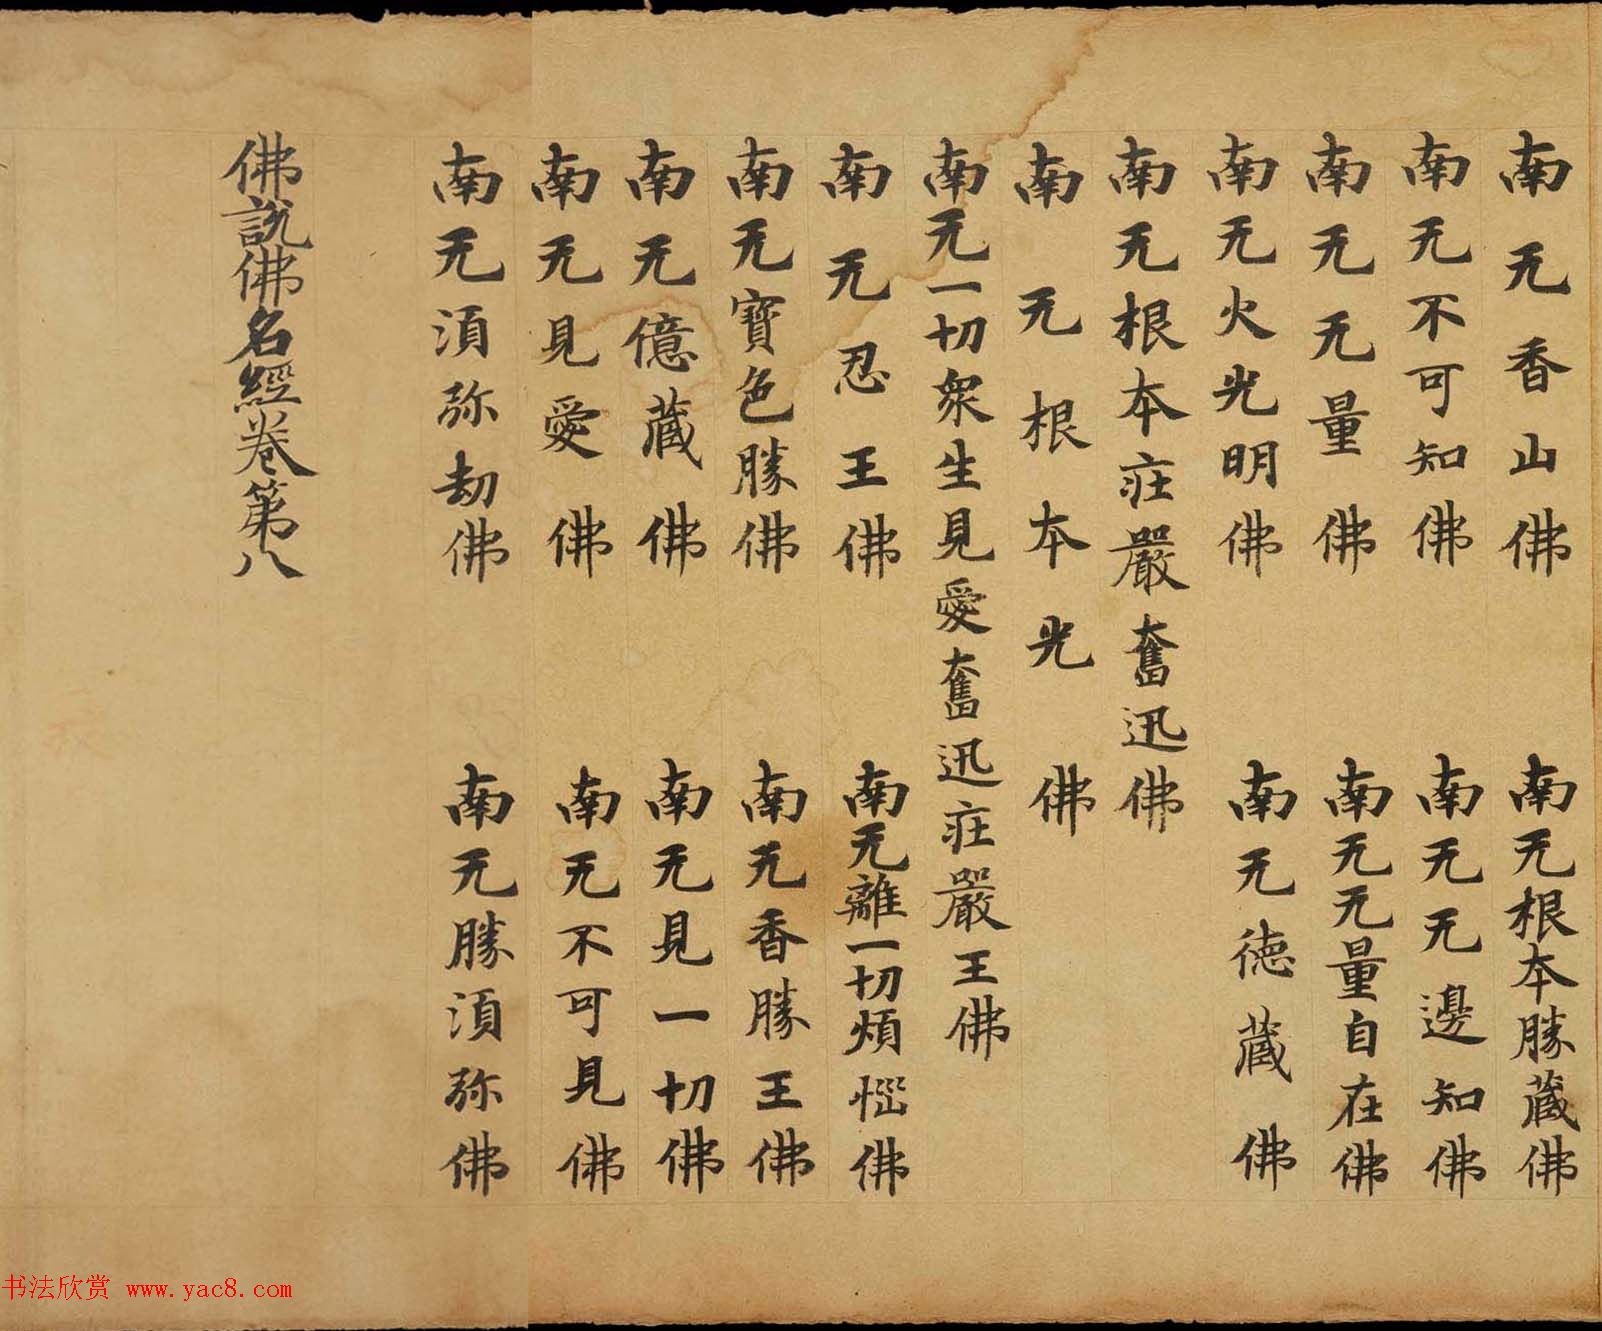 南无香山佛 南无根本勝藏佛
南无不可知佛 南无无邊知佛
南无无量佛 南无无量自在佛
南无火光明佛 南无德藏佛
南无根本莊嚴奮迅佛
南无根本光佛
南无一切衆生見愛奮迅莊嚴王佛
南无忍王佛 南无離一切煩惱佛
南无寶色勝佛 南无香勝王佛
南无億藏佛 南无見一切佛
南无見愛佛 南无不可見佛
南无須弥劫佛 南无勝須弥佛
佛說佛名經卷第八
书法欣赏 www.yac8.com